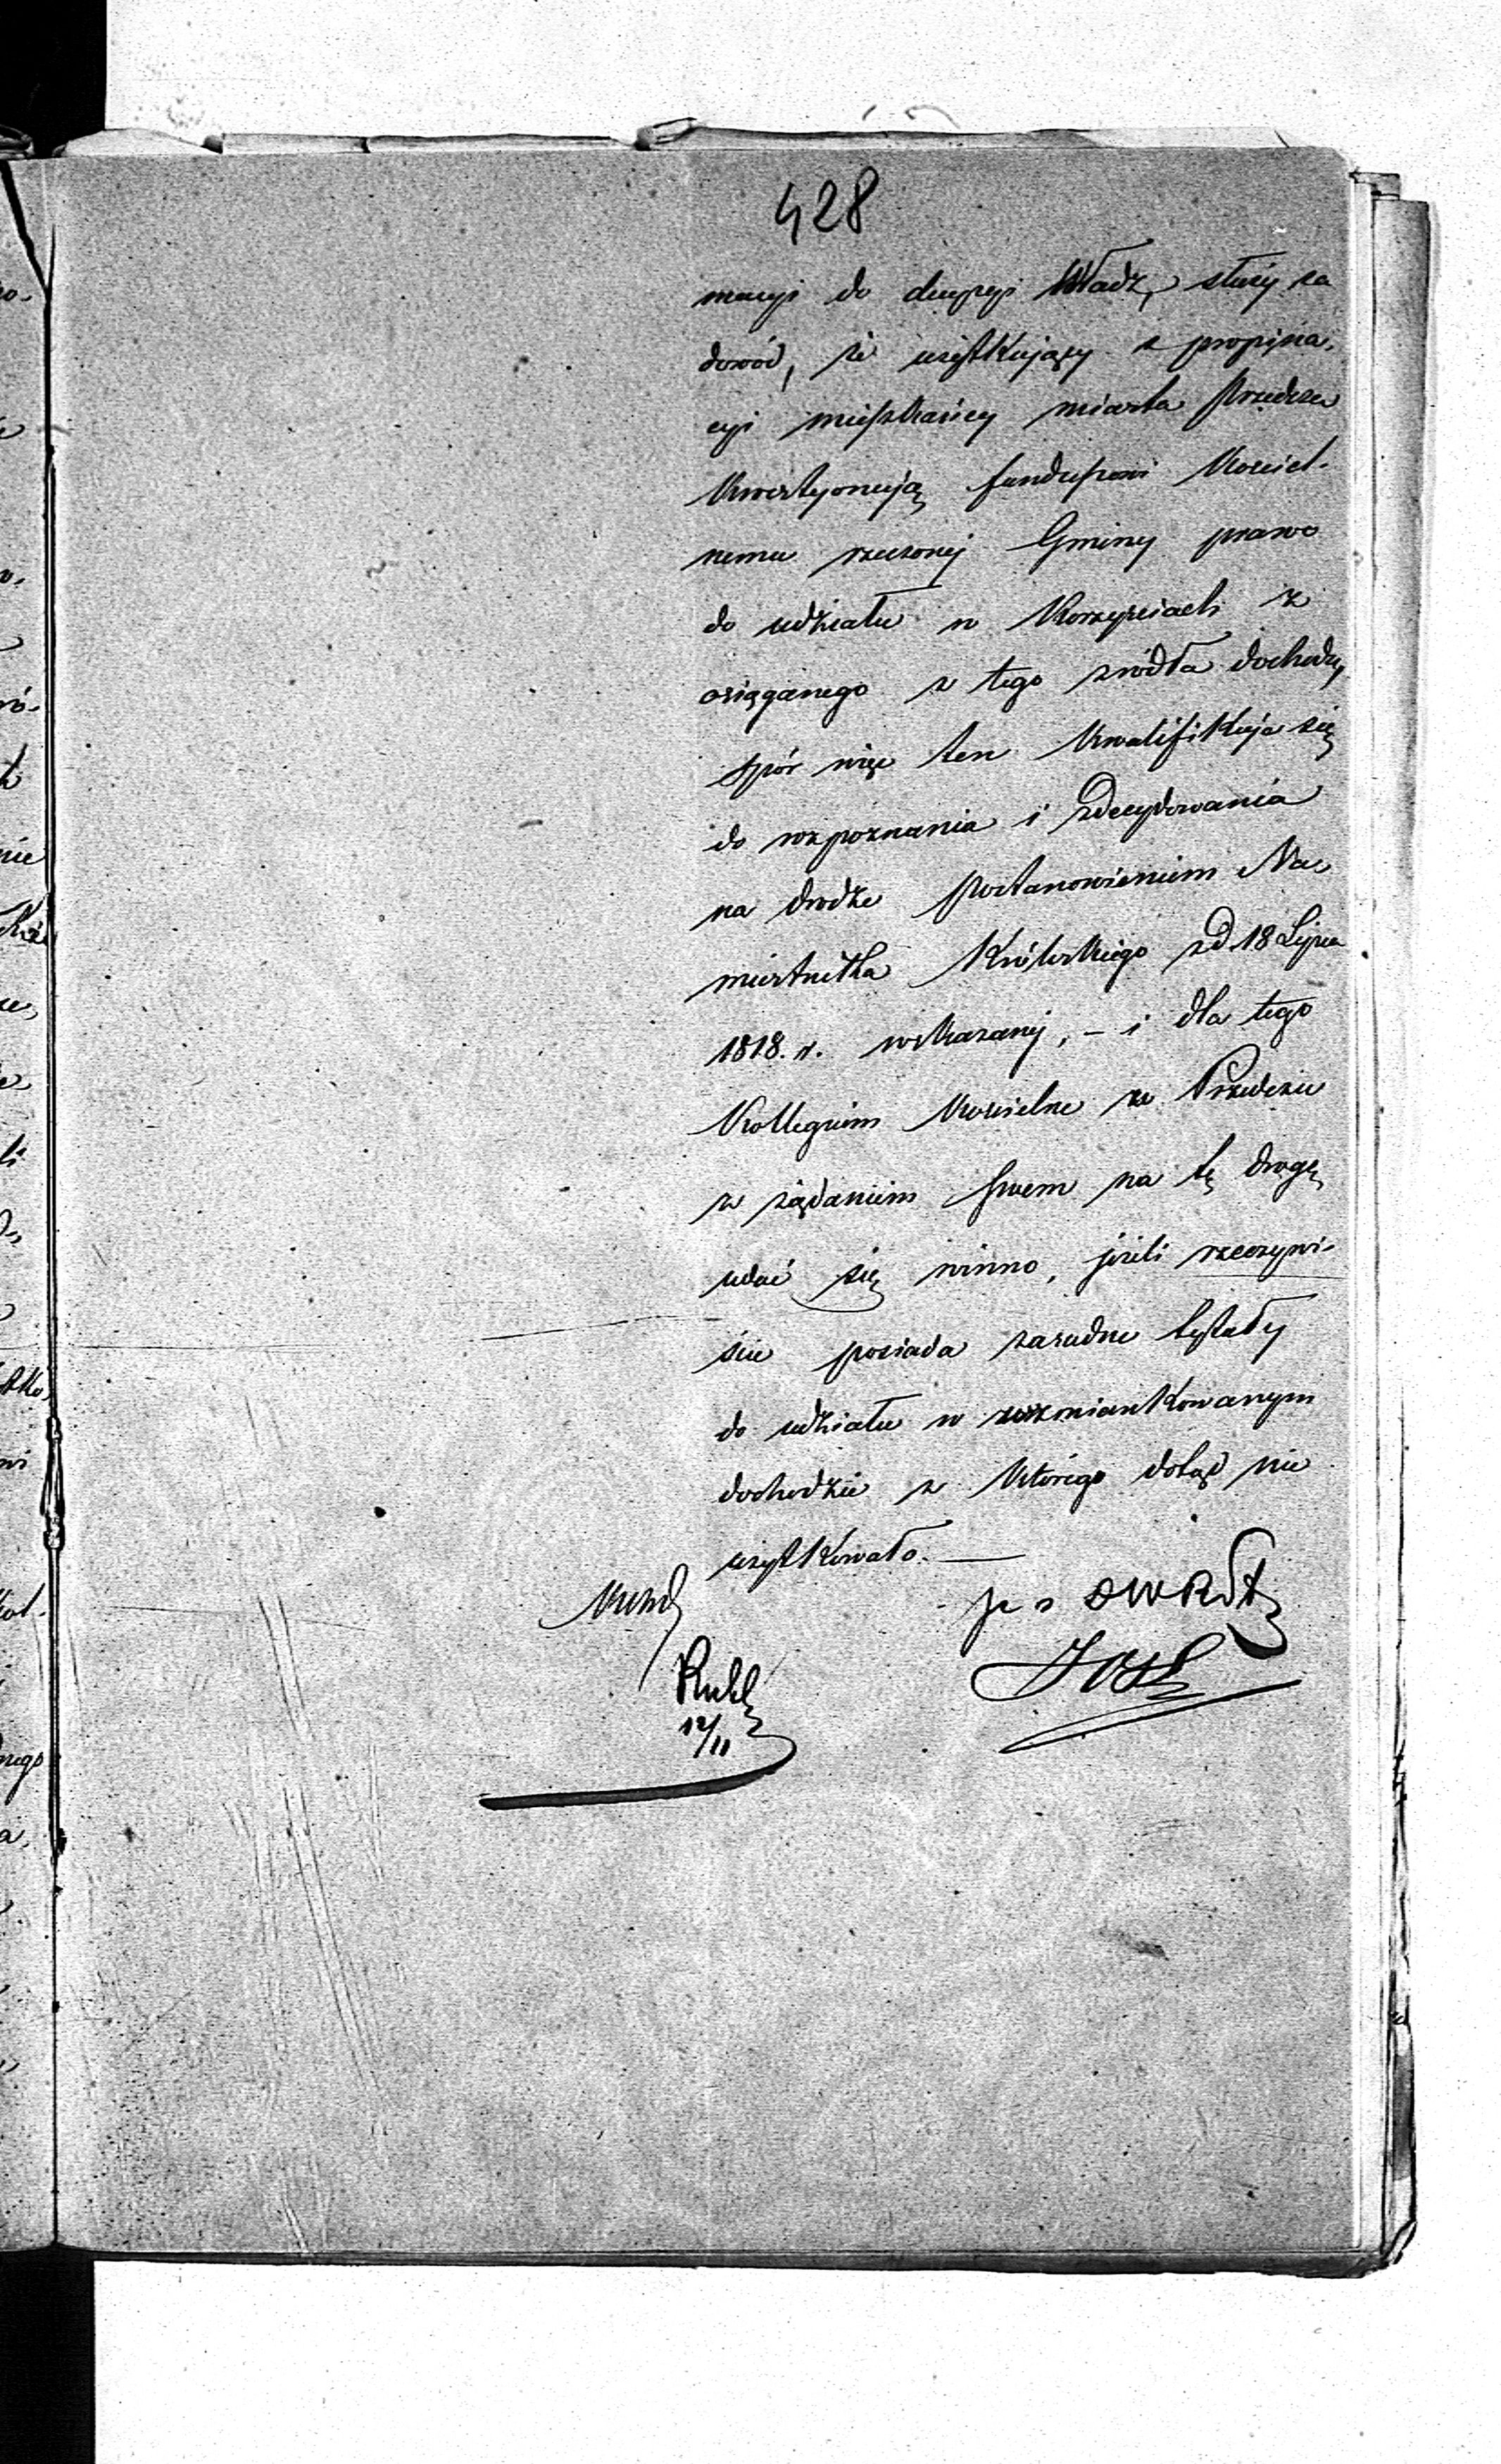 428
macyi do decyzyi Władz, służy za
dowód, że użytkujący z propina,
cyi mieszkańcy miasta Przedcza
Kwestyonują funduszowi Kościel-
nemu rzeczonej Gminy prawo
do udziału w Korzyściach z
osiąganego z tego zródła dochodu,
spór więc ten Kwalifikuje się
do rozpoznania i zdecydowania
na drodze postanowieniem Na,
miestnika Królewskiego z d 18 Lipca
1818. r. wskazanej, – i dla tego
Kollegium Kościelne w Przedczu
z żądaniem swem na tę drogę
udać się winno, jeżeli rzeczywi-
ście posiada zasadne tytuły
do udziału w wzmiankowanym
dochodzie z Którego dotąd nie
użytkowało. —
12/11